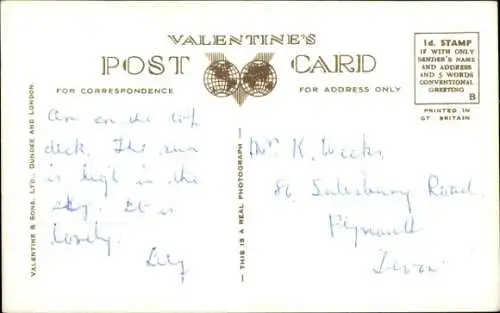 VALENTINE'S
POST CARD
FOR CORRESPONDENCE
FOR ADDRESS ONLY
1d. STAMP
IF WITH ONLY
SENDER'S NAME
AND ADDRESS
AND 5 WORDS
CONVENTIONAL
GREETING
B
PRINTED IN
GT BRITAIN.
VALENTINE & SONS, LTD., DUNDEE AND LONDON.
THIS IS A REAL PHOTOGRAPH
Am on the top
deck. The sun
is high in the
sky. It is
lovely.
Lily
Mr K. Weeks,
86 Salisbury Road.
Plymouth
Devon